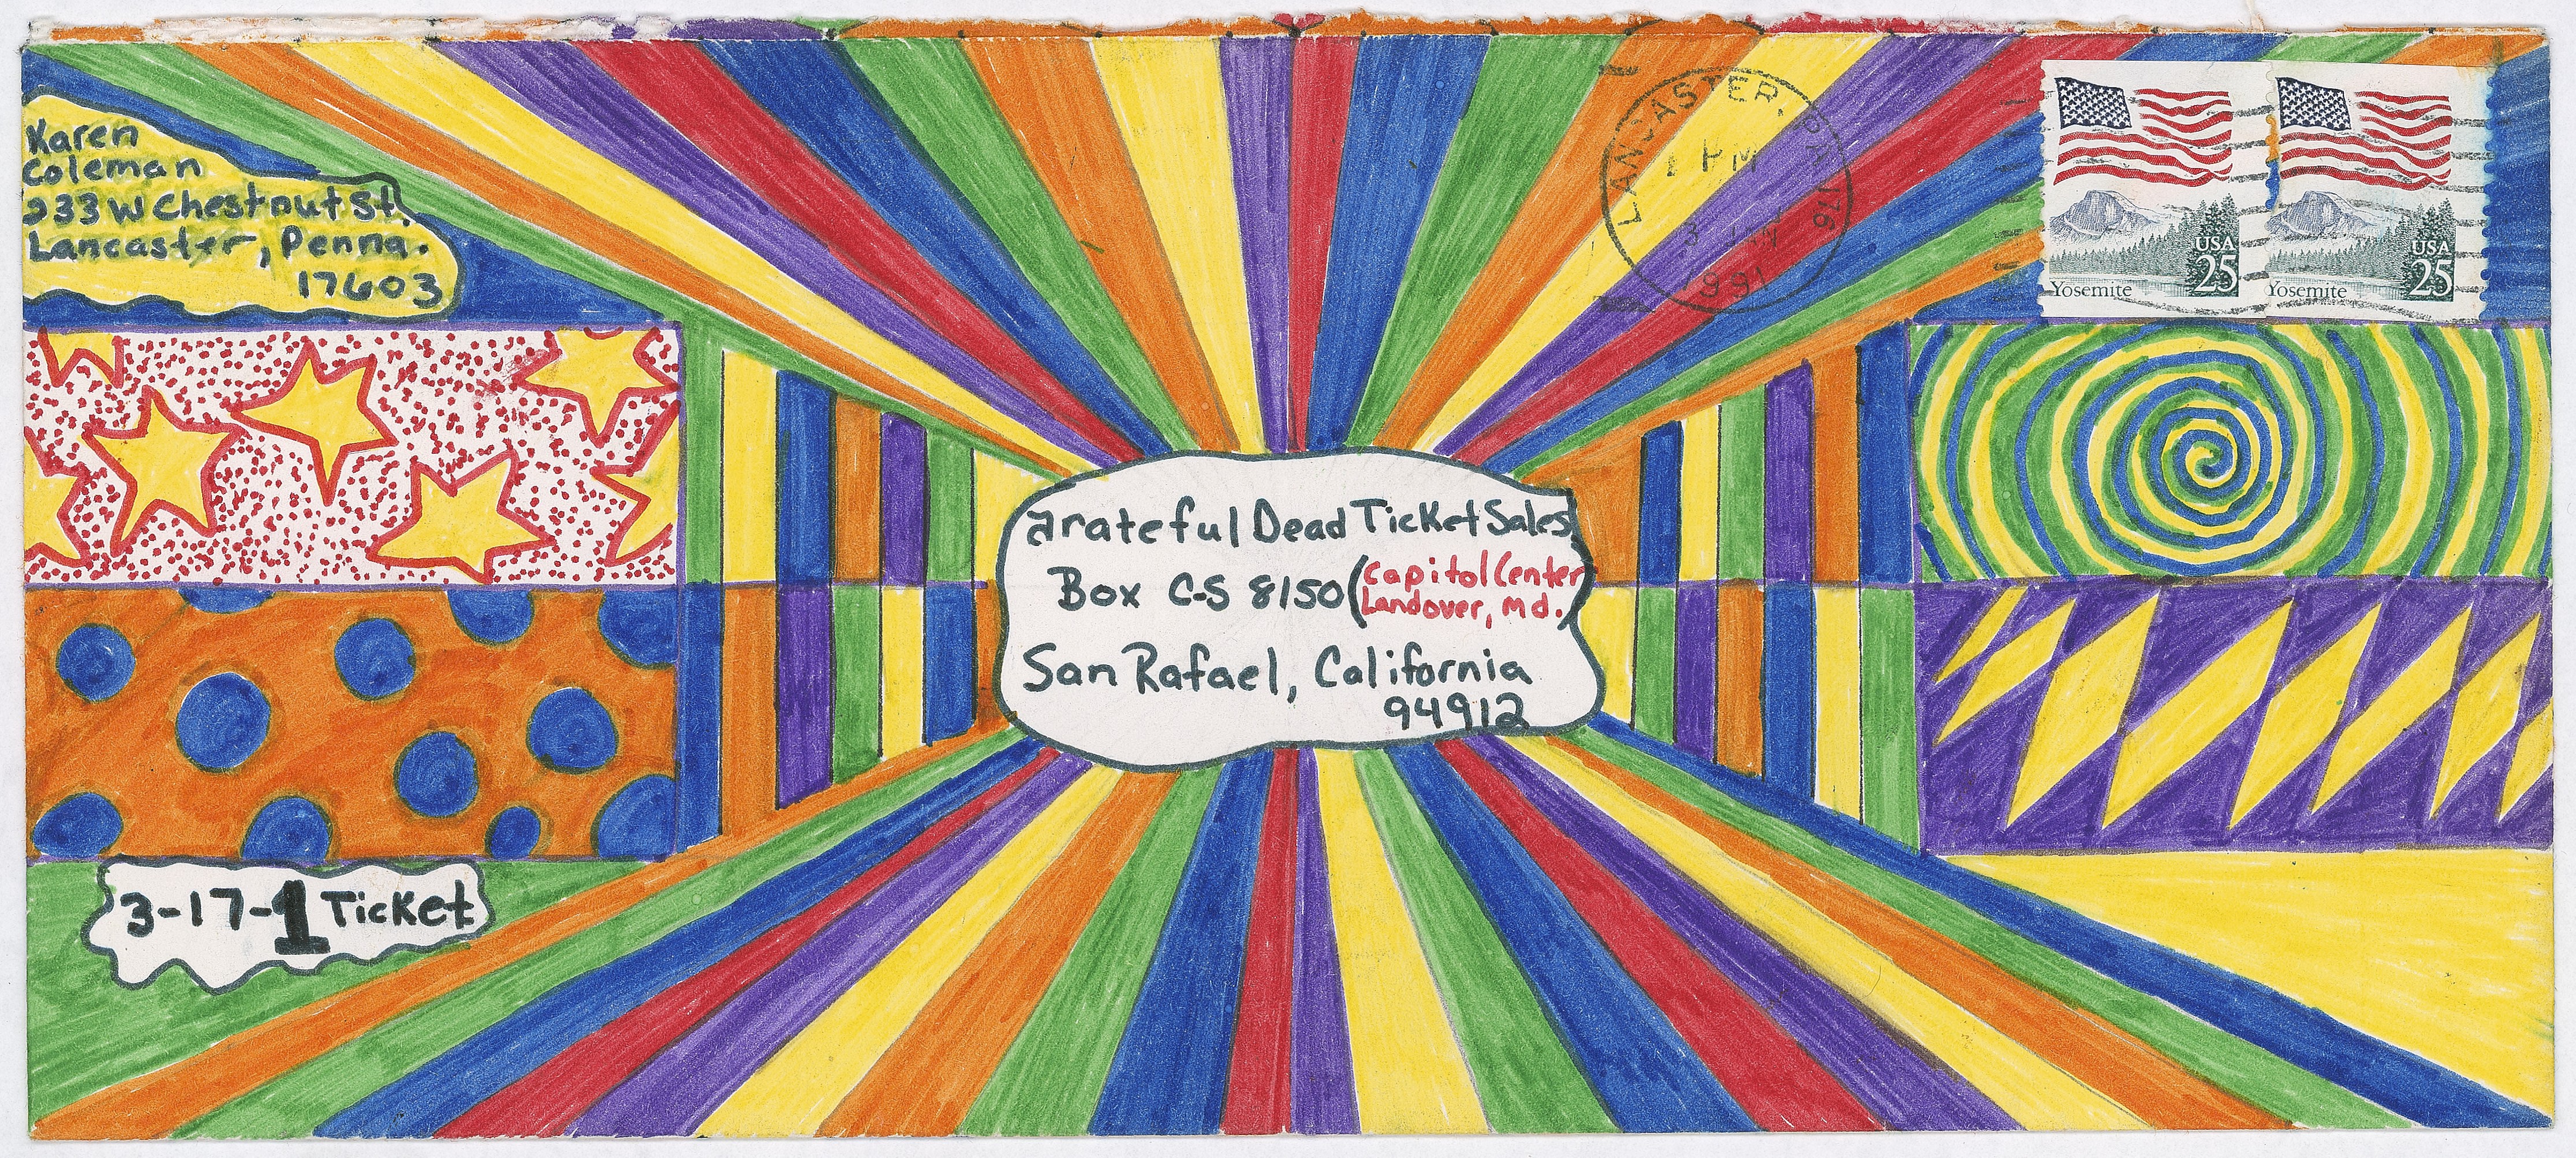 Karen
Coleman
233 W Chestnut St.
Lancaster, Penna.
17603
LANCASTER, PA 176
1 PM
3 JAN
1991
USA
25
Yosemite
USA
25
Yosemite
Grateful Dead Ticket Sales
Box C-S 8150 (Capitol Center
Landover, Md.)
San Rafael, California
94912
3-17-1 Ticket